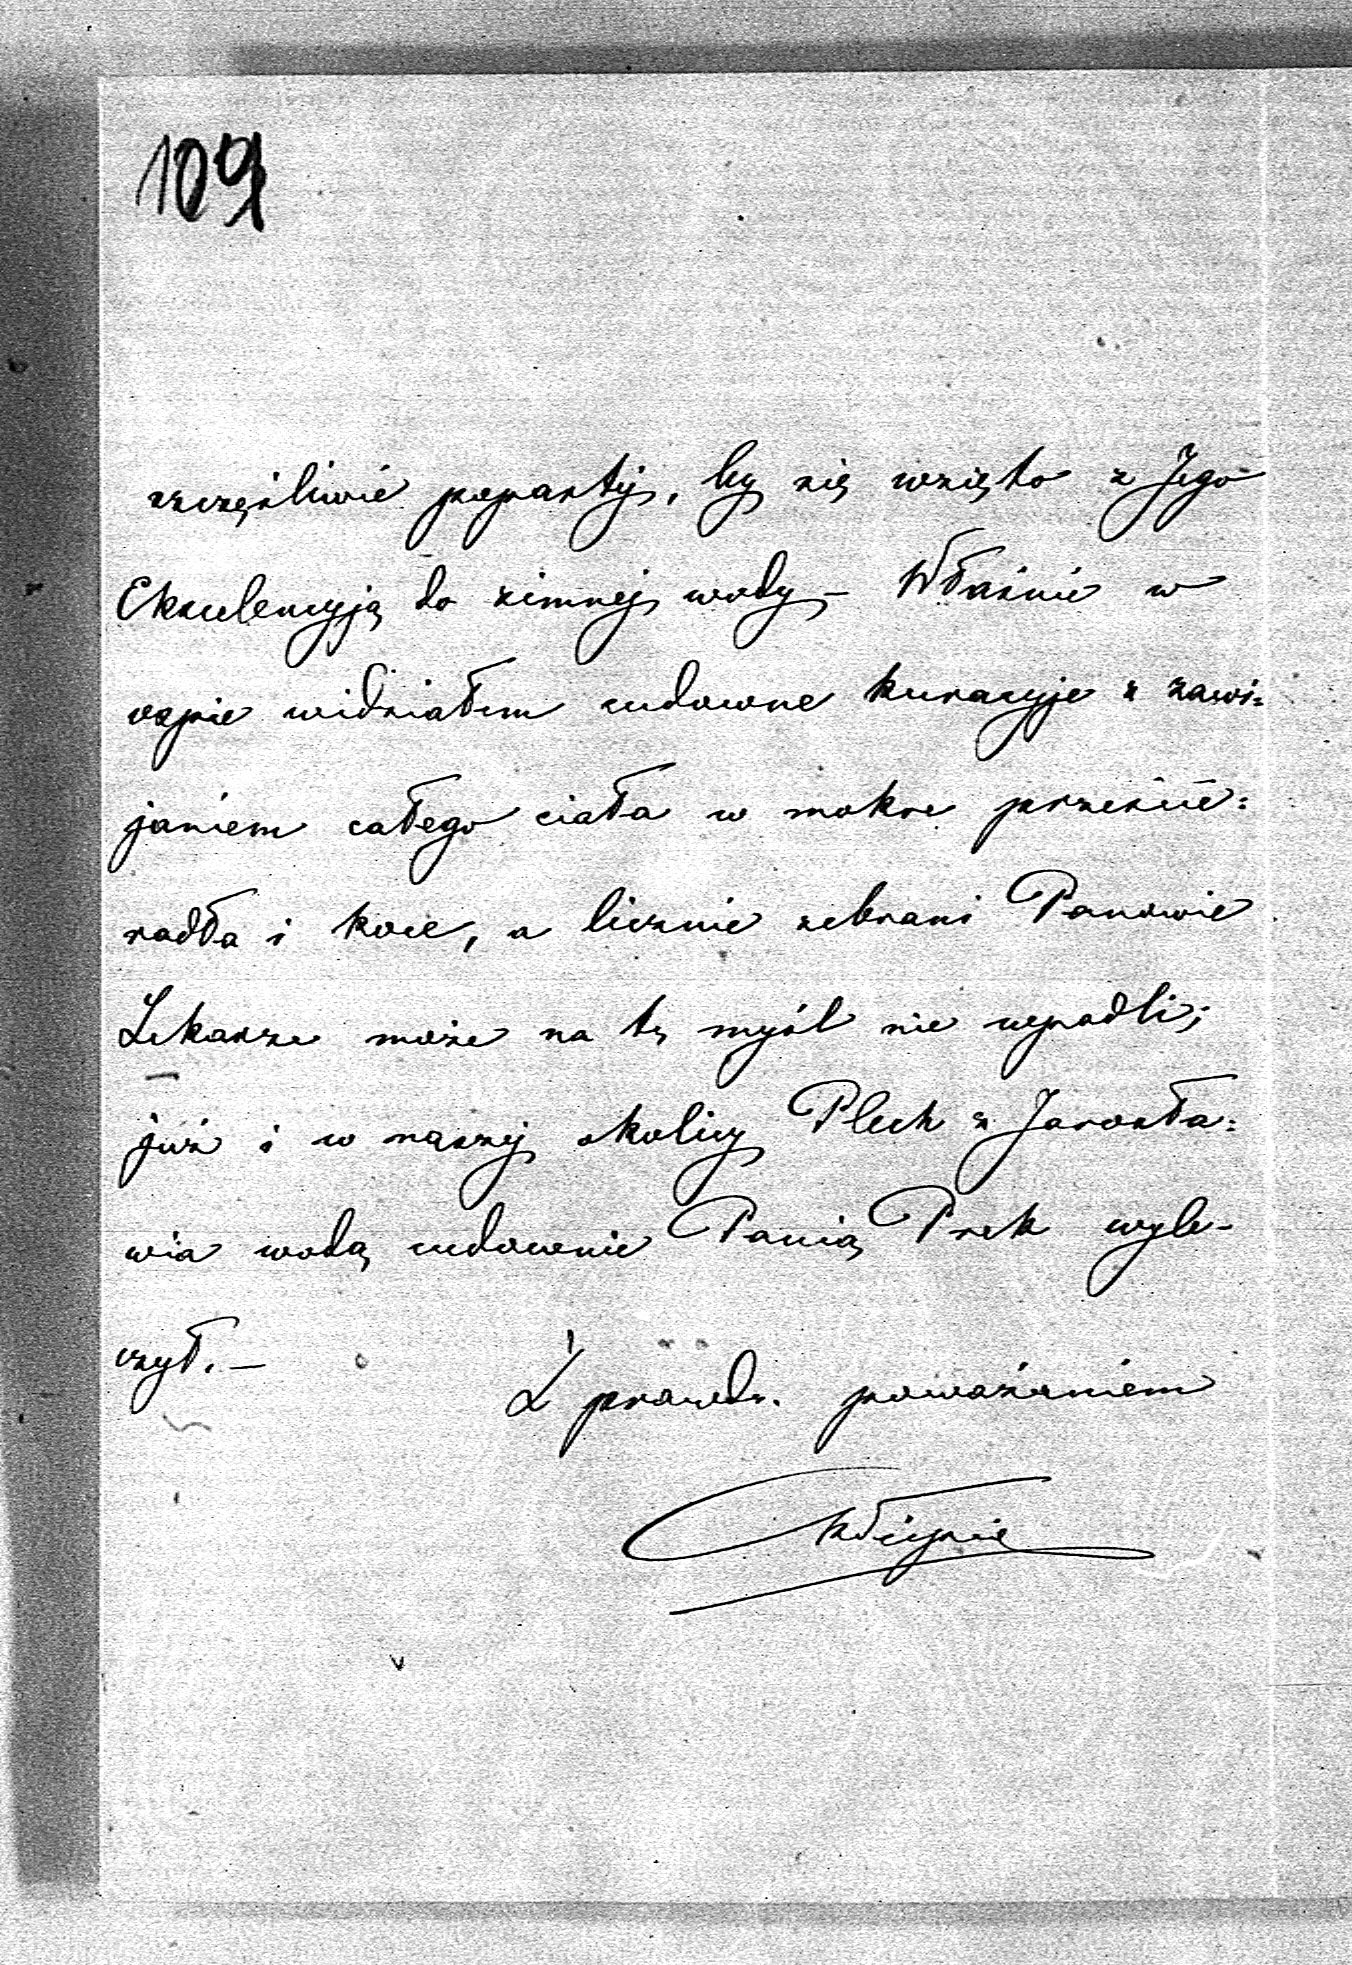 109
szczęśliwie poparty, by się wzięto z Jego
Ekscelencyją do zimnej wody – Właśnie w
ospie widziałem cudowne kuracyje z zawi=
janiem całego ciała w mokre przeście=
radła i koce, a licznie zebrani Panowie
Lekarze może na tę myśl nie wpadli;
już i w naszej okolicy Plech z Jarosła=
wia wodą cudownie Panią Prek wyle-
czył. –
Z prawdz. poważaniem